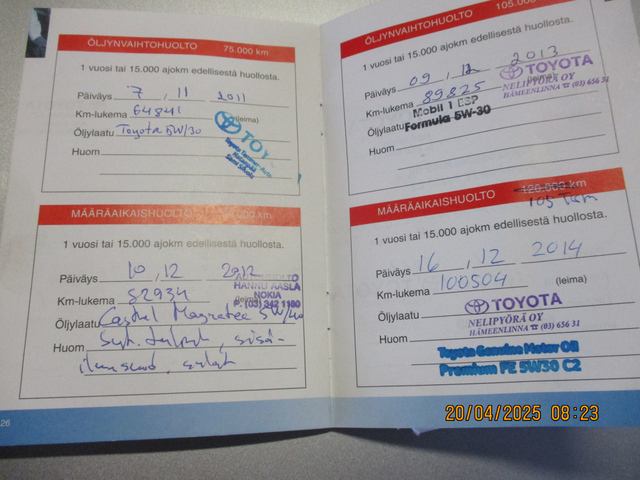 ÖLJYNVAIHTOHUOLTO 75.000 km
1 vuosi tai 15.000 ajokm edellisestä huollosta.
Päiväys 7 , 11 2011
Km-lukema 64841 (leima)
Öljylaatu Toyota 5W/30
TOY
Huom
MÄÄRÄAIKAISHUOLTO 90.000 km
1 vuosi tai 15.000 ajokm edellisestä huollosta.
Päiväys 10 , 12 2012
HANNU AASLA
Km-lukema 82934
NOKIA
P. (03) 342 1180
Öljylaatu Castrol Magnatec 5W/40
Huom Syt. tulpat , sisä-
26
ÖLJYNVAIHTOHUOLTO 105.000
1 vuosi tai 15.000 ajokm edellisestä huollosta.
Päiväys 09 , 12 2013
TOYOTA
NELIPYÖRÄ OY
HÄMEENLINNA ☎ (03) 656 31
Km-lukema 89825 (leima)
Mobil 1 ESP
Öljylaatu Formula 5W-30
Huom
MÄÄRÄAIKAISHUOLTO 120.000 km
105 tkm
1 vuosi tai 15.000 ajokm edellisestä huollosta.
Päiväys 16 , 12 2014
Km-lukema 100504 (leima)
TOYOTA
Öljylaatu NELIPYÖRÄ OY
HÄMEENLINNA ☎ (03) 656 31
Huom
Toyota Genuine Motor Oil
Premium FE 5W30 C2
20/04/2025 08:23